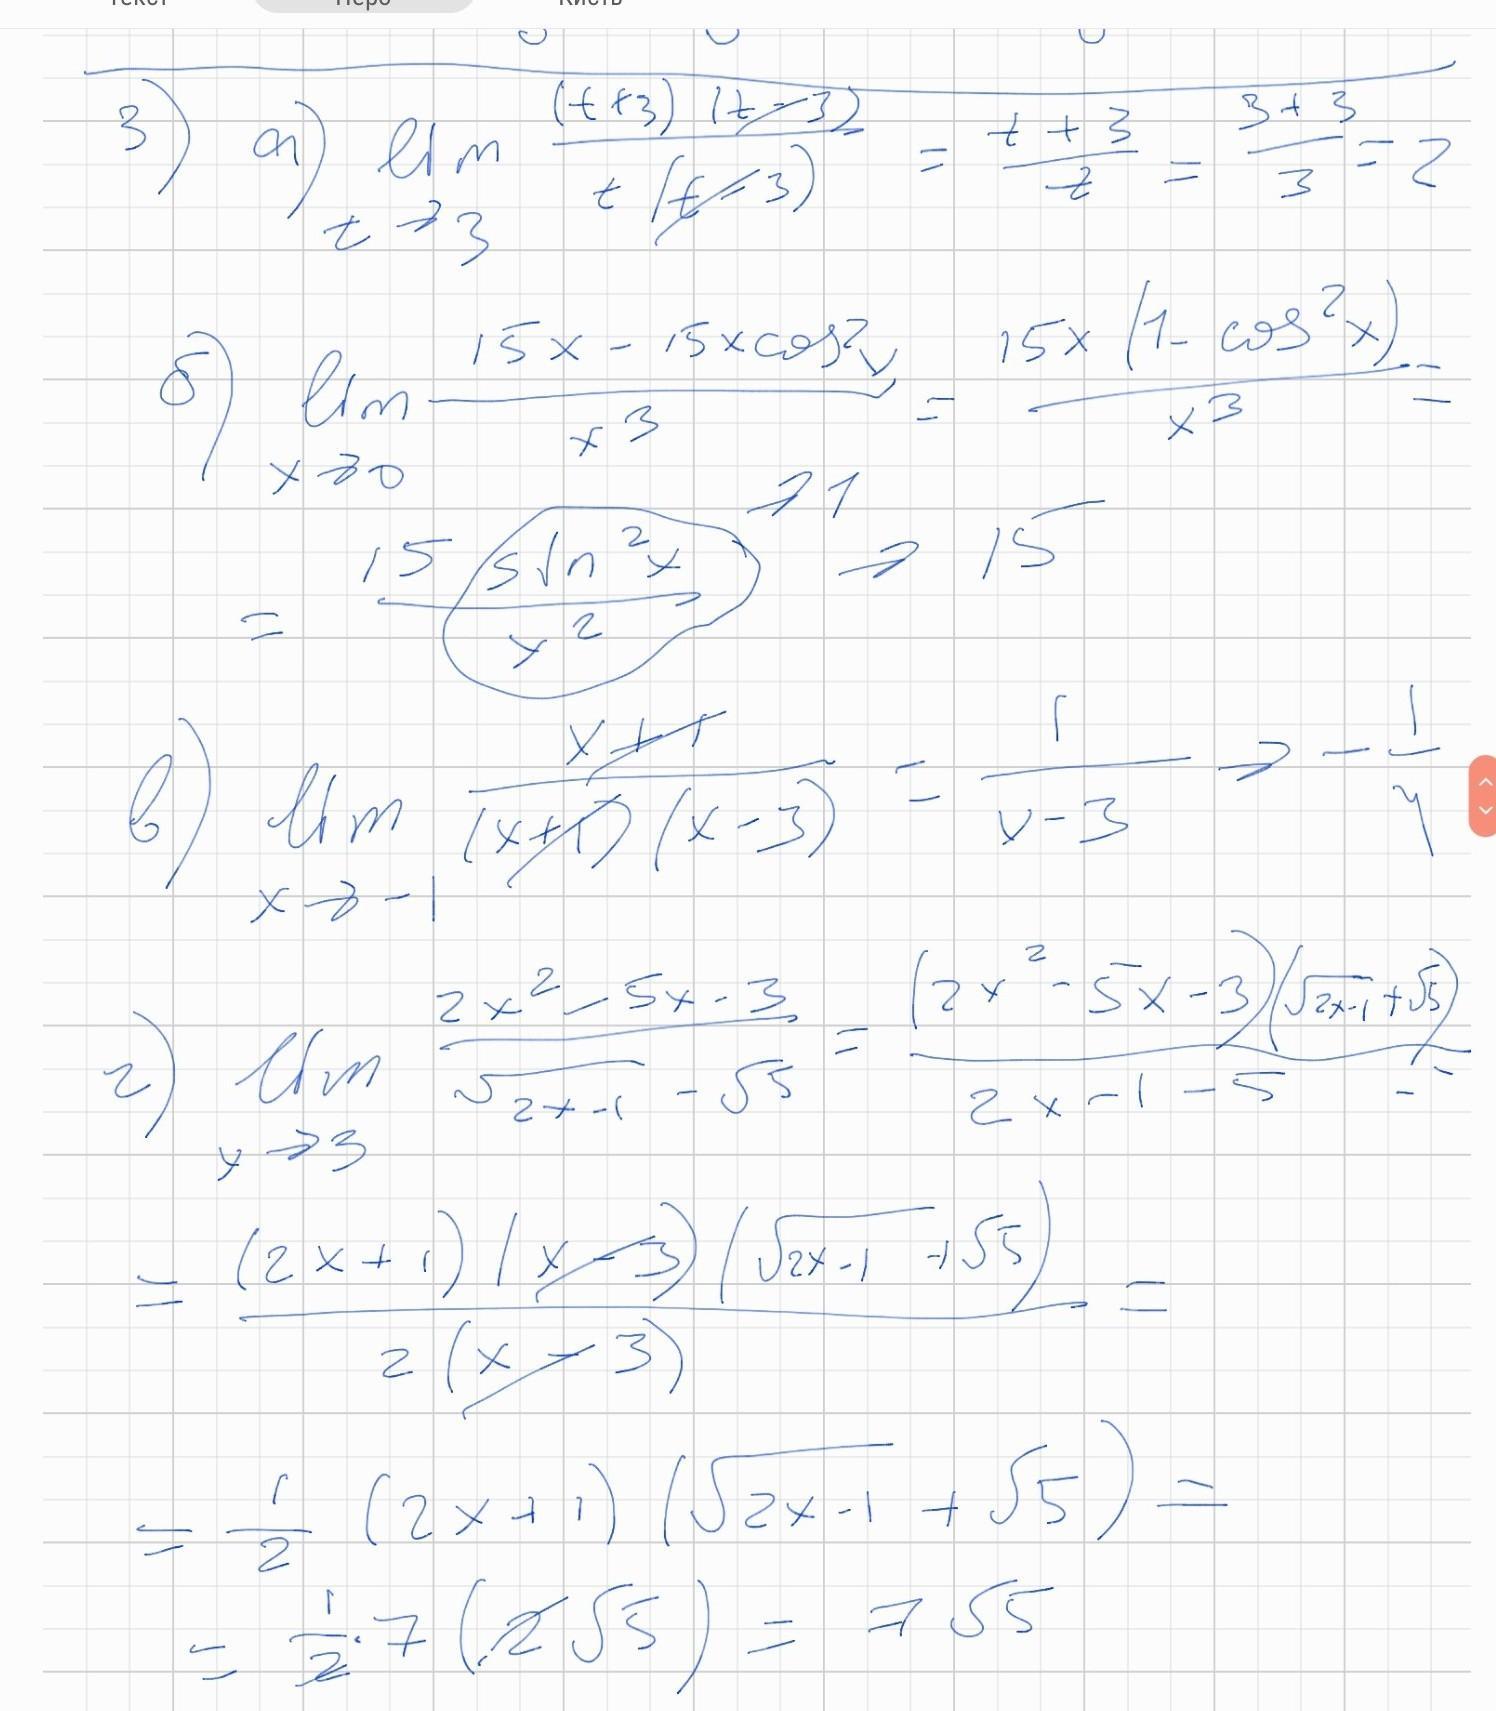 Текст Перо Кисть
3) а) lim t→3 (t+3)(t-3) / t(t-3) = t+3 / t = 3+3 / 3 = 2
б) lim x→0 15x - 15x cos²x / x³ = 15x (1 - cos²x) / x³ =
= 15 sin²x / x² →1 → 15
в) lim x→-1 x+1 / (x+1)(x-3) = 1 / x-3 → -1/4
г) lim x→3 2x² - 5x - 3 / √2x-1 - √5 = (2x² - 5x - 3)(√2x-1 + √5) / 2x - 1 - 5 =
= (2x+1)(x-3)(√2x-1 + √5) / 2(x-3) =
= 1/2 (2x+1)(√2x-1 + √5) =
= 1/2 · 7 (2√5) = 7√5